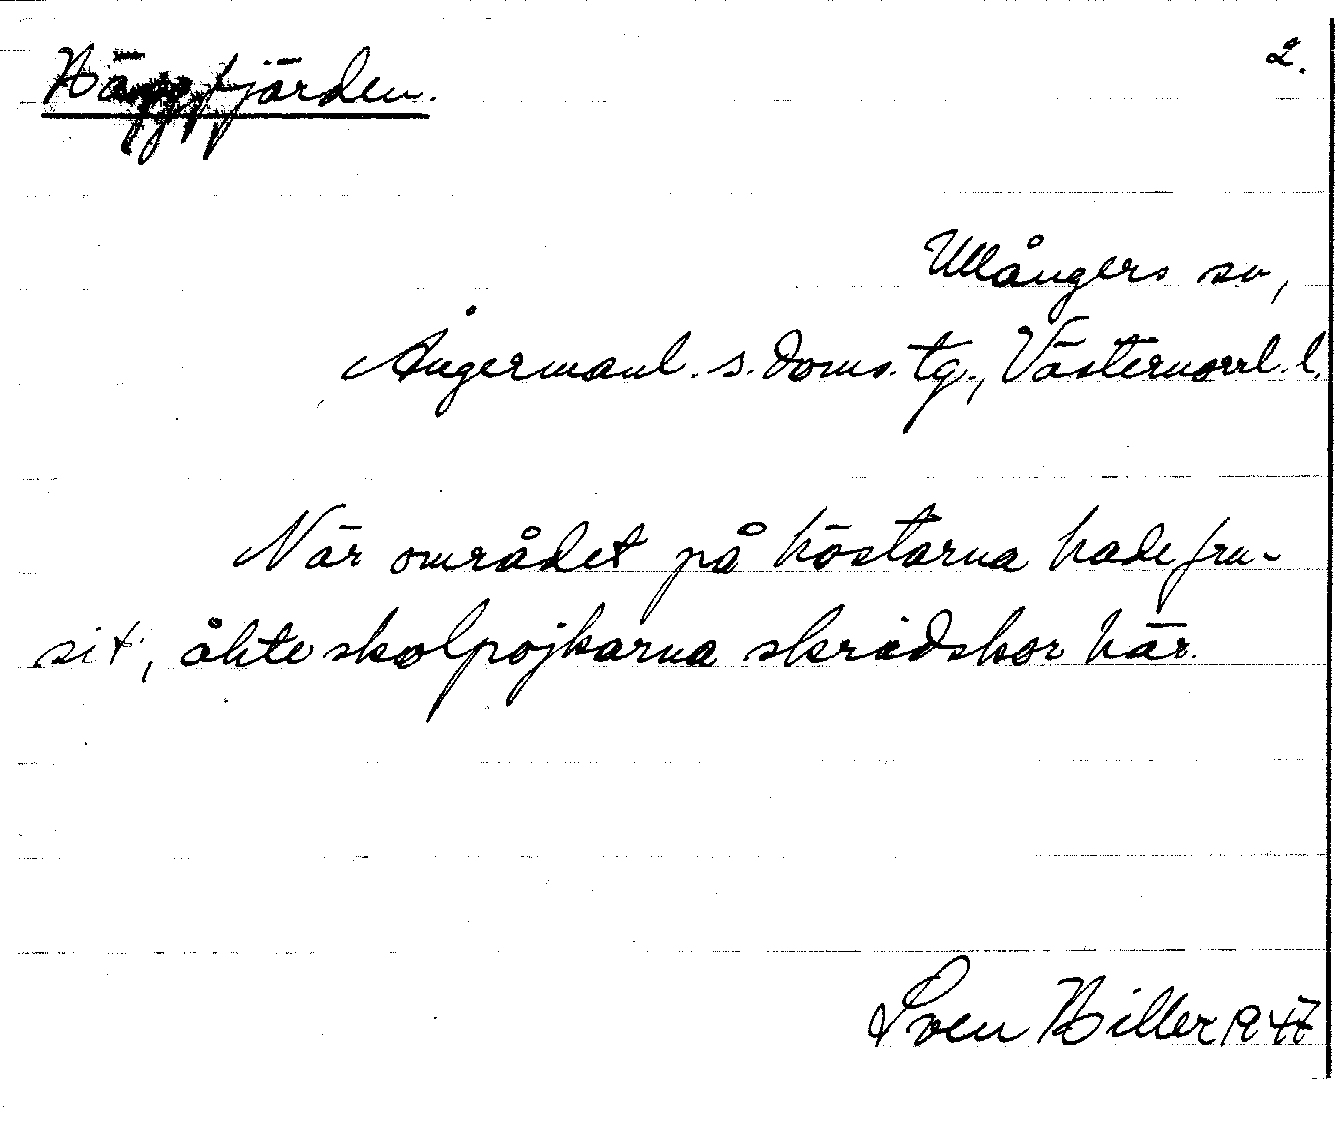 Häggfjärden.
2.
Ullångers sn,
Ångermanl. s. doms. tg., Västernorrl. l.
När området på höstarna hade fru-
sit, åkte skolpojkarna skridskor här.
Sven Hiller 1947